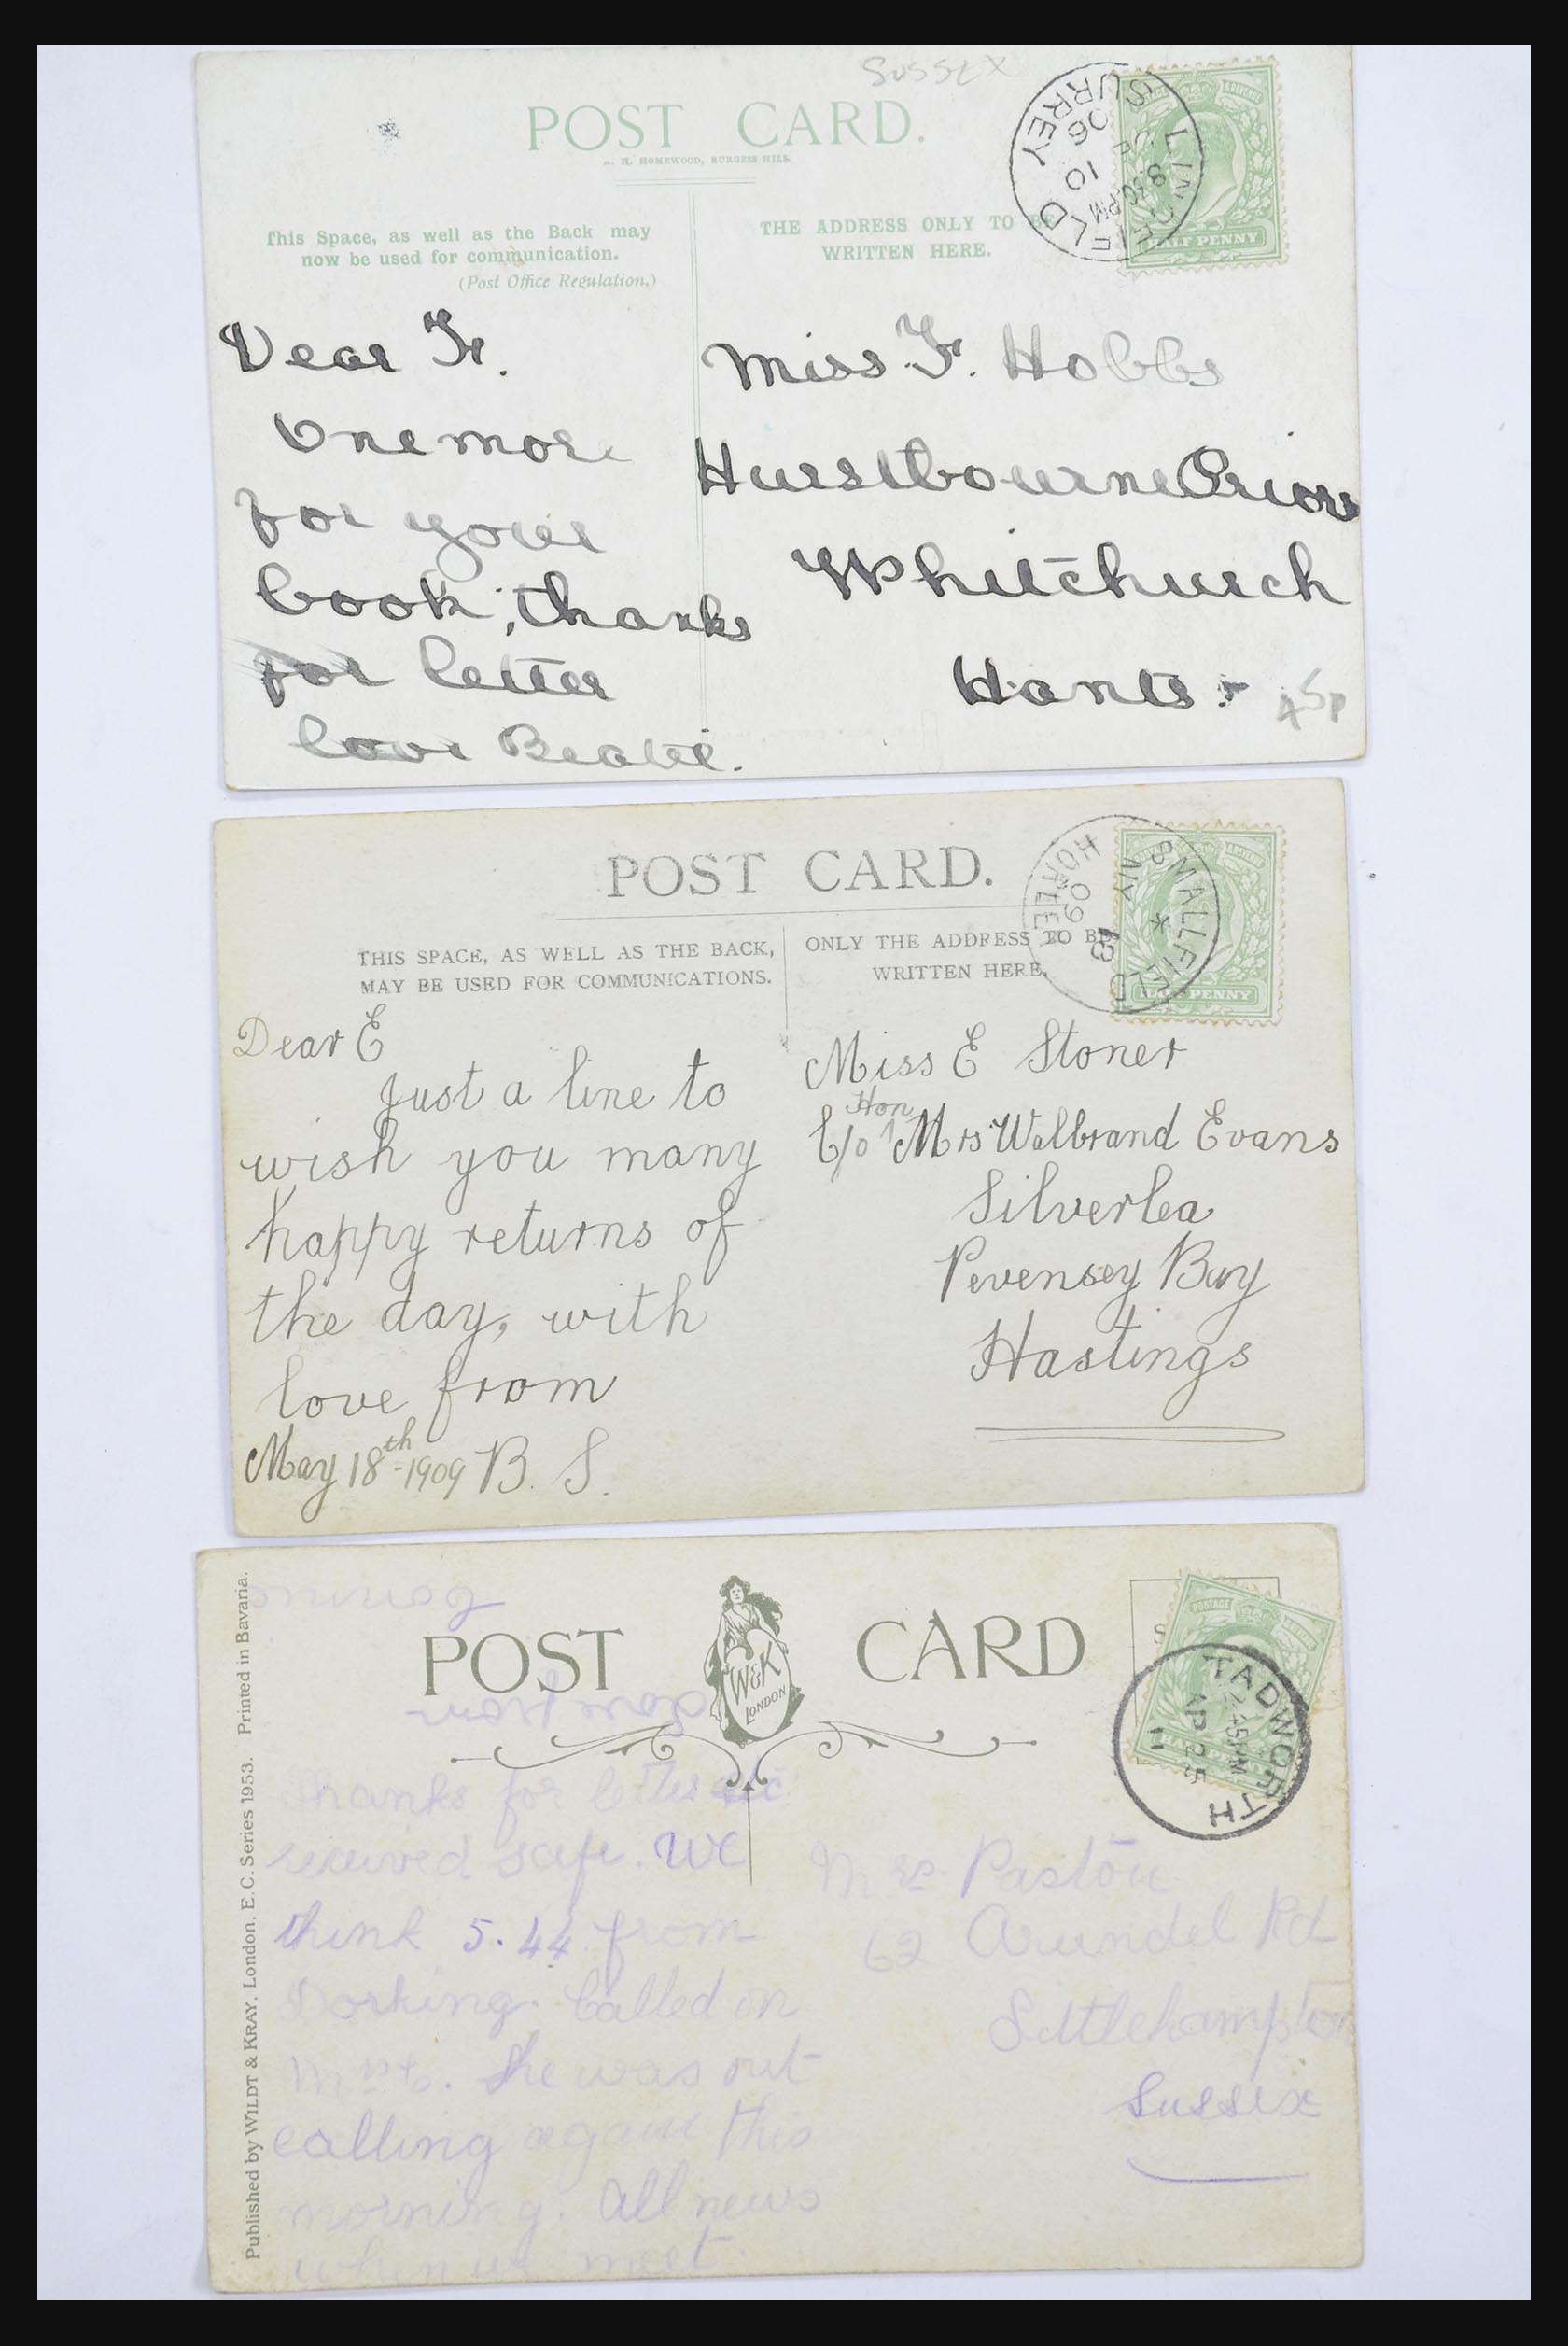 SUSSEX
POST CARD.
H. HOMEWOOD, BURGESS HILL.
This Space, as well as the Back may
now be used for communication.
(Post Office Regulation.)
THE ADDRESS ONLY TO BE
WRITTEN HERE.
LINGFIELD
SURREY
8.30 PM
10
06
HALF PENNY
Dear Fr.
One more
for your
book, thanks
for letter
love Beatie.
Miss F. Hobbs
Hurstbourne Priors
Whitchurch
Hants
45p
POST CARD.
THIS SPACE, AS WELL AS THE BACK,
MAY BE USED FOR COMMUNICATIONS.
ONLY THE ADDRESS TO BE
WRITTEN HERE.
SMALLFIELD
HORLEY
MY
09
HALF PENNY
Dear E
Just a line to
wish you many
happy returns of
the day, with
love from
May 18th - 1909 B. S.
Miss E Stoner
C/o Hon Mrs Walbrand Evans
Silverlea
Pevensey Bay
Hastings
Published by WILDT & KRAY, London, E.C. Series 1953. Printed in Bavaria.
POST CARD
W&K
LONDON
POSTAGE
TADWORTH
2.45 PM
AP 25
11
love from
Thanks for letter etc
received safe. We
think 5.44 from
Dorking. Called on
Mrs C. She was out
calling again this
morning. All news
when we meet.
Mrs
62 Arundel Rd
Littlehampton
Sussex